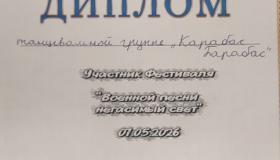 ДИПЛОМ
танцевальной группе „Карабас
Барабас"
Участник Фестиваля
"Военной песни
негасимый свет"
01.05.2026